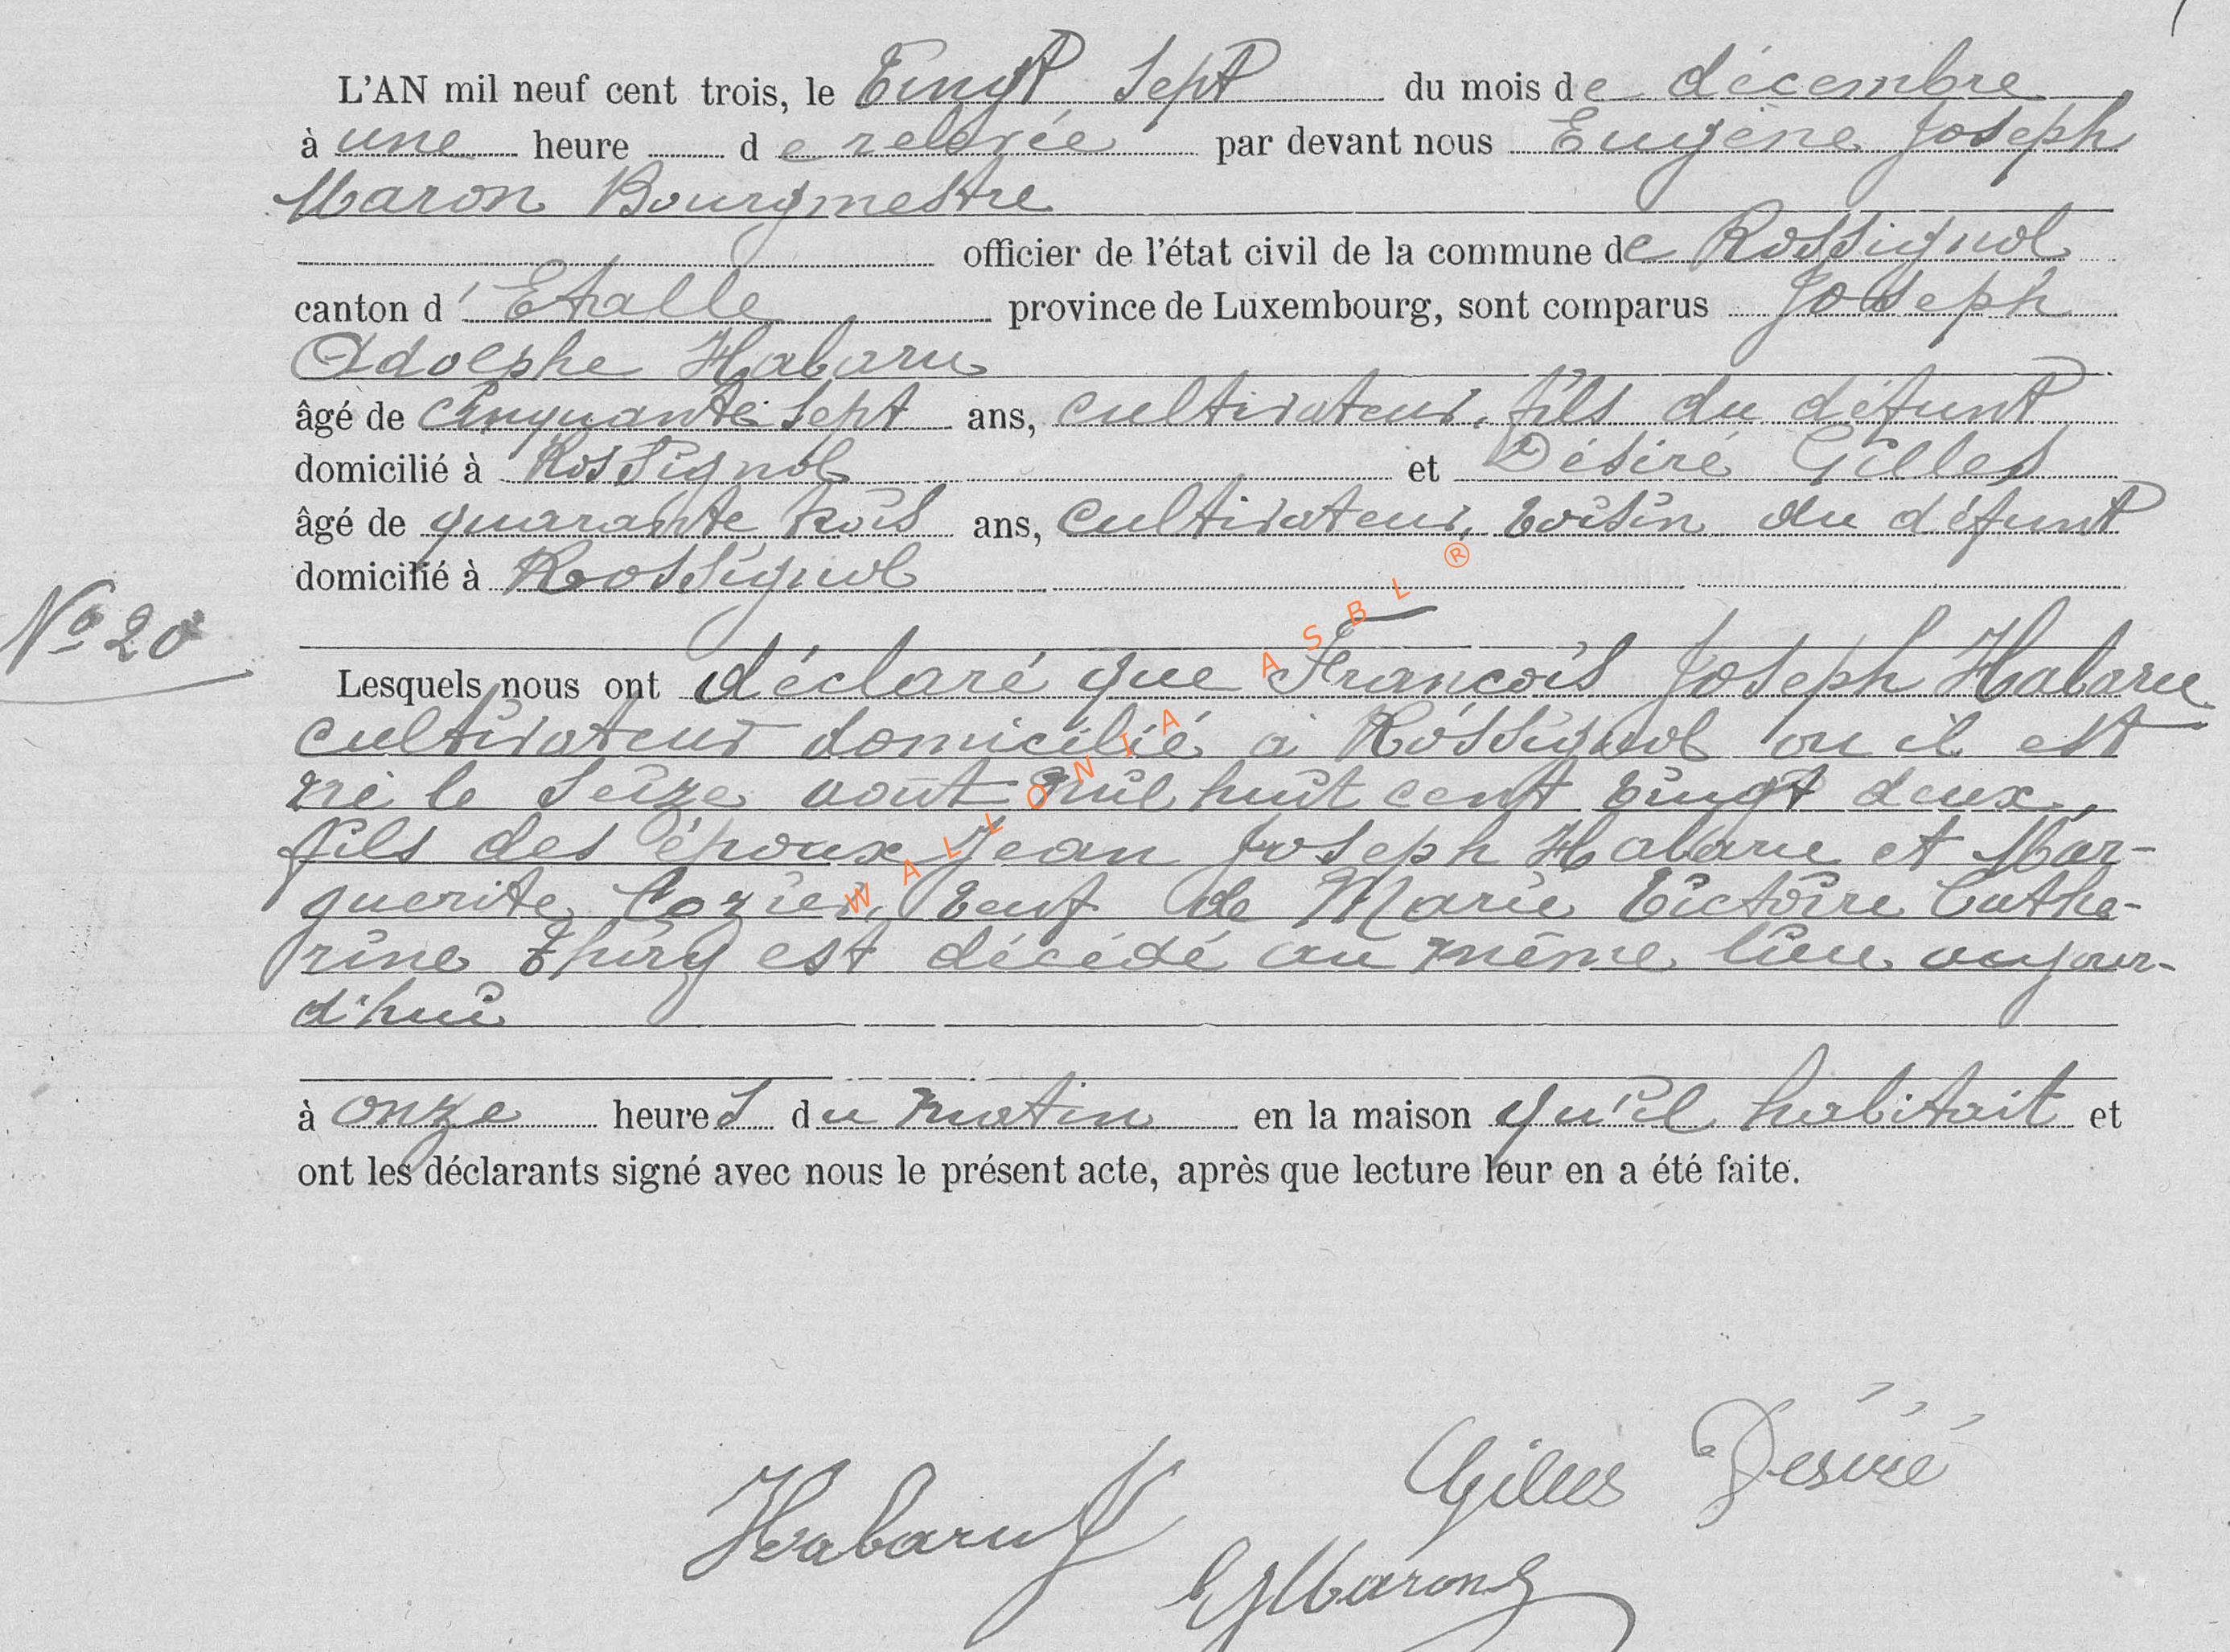 L'AN mil neuf cent trois, le Vingt sept du mois de décembre
à une heure de relevée par devant nous Eugène Joseph
Maron Bourgmestre
officier de l'état civil de la commune de Rossignol
canton d'Etalle province de Luxembourg, sont comparus Joseph
Adolphe Habaru
âgé de cinquante sept ans, cultivateur, fils du défunt
domicilié à Rossignol et Désiré Gilles
âgé de quarante trois ans, cultivateur, voisin du défunt
domicilié à Rossignol
N° 20
Lesquels nous ont déclaré que François Joseph Habaru
cultivateur domicilié à Rossignol ou il est
né le seize août mil huit cent vingt deux,
fils des époux Jean Joseph Habaru et Mar-
guerite Lozier, veuf de Marie Victoire Cathe-
rine Thiry est décédé au même lieu aujour-
d'hui
à onze heures du matin en la maison qu'il habitait et
ont les déclarants signé avec nous le présent acte, après que lecture leur en a été faite.
Gilles Désiré
Habaru
EJMaron
WALLONIA ASBL ®